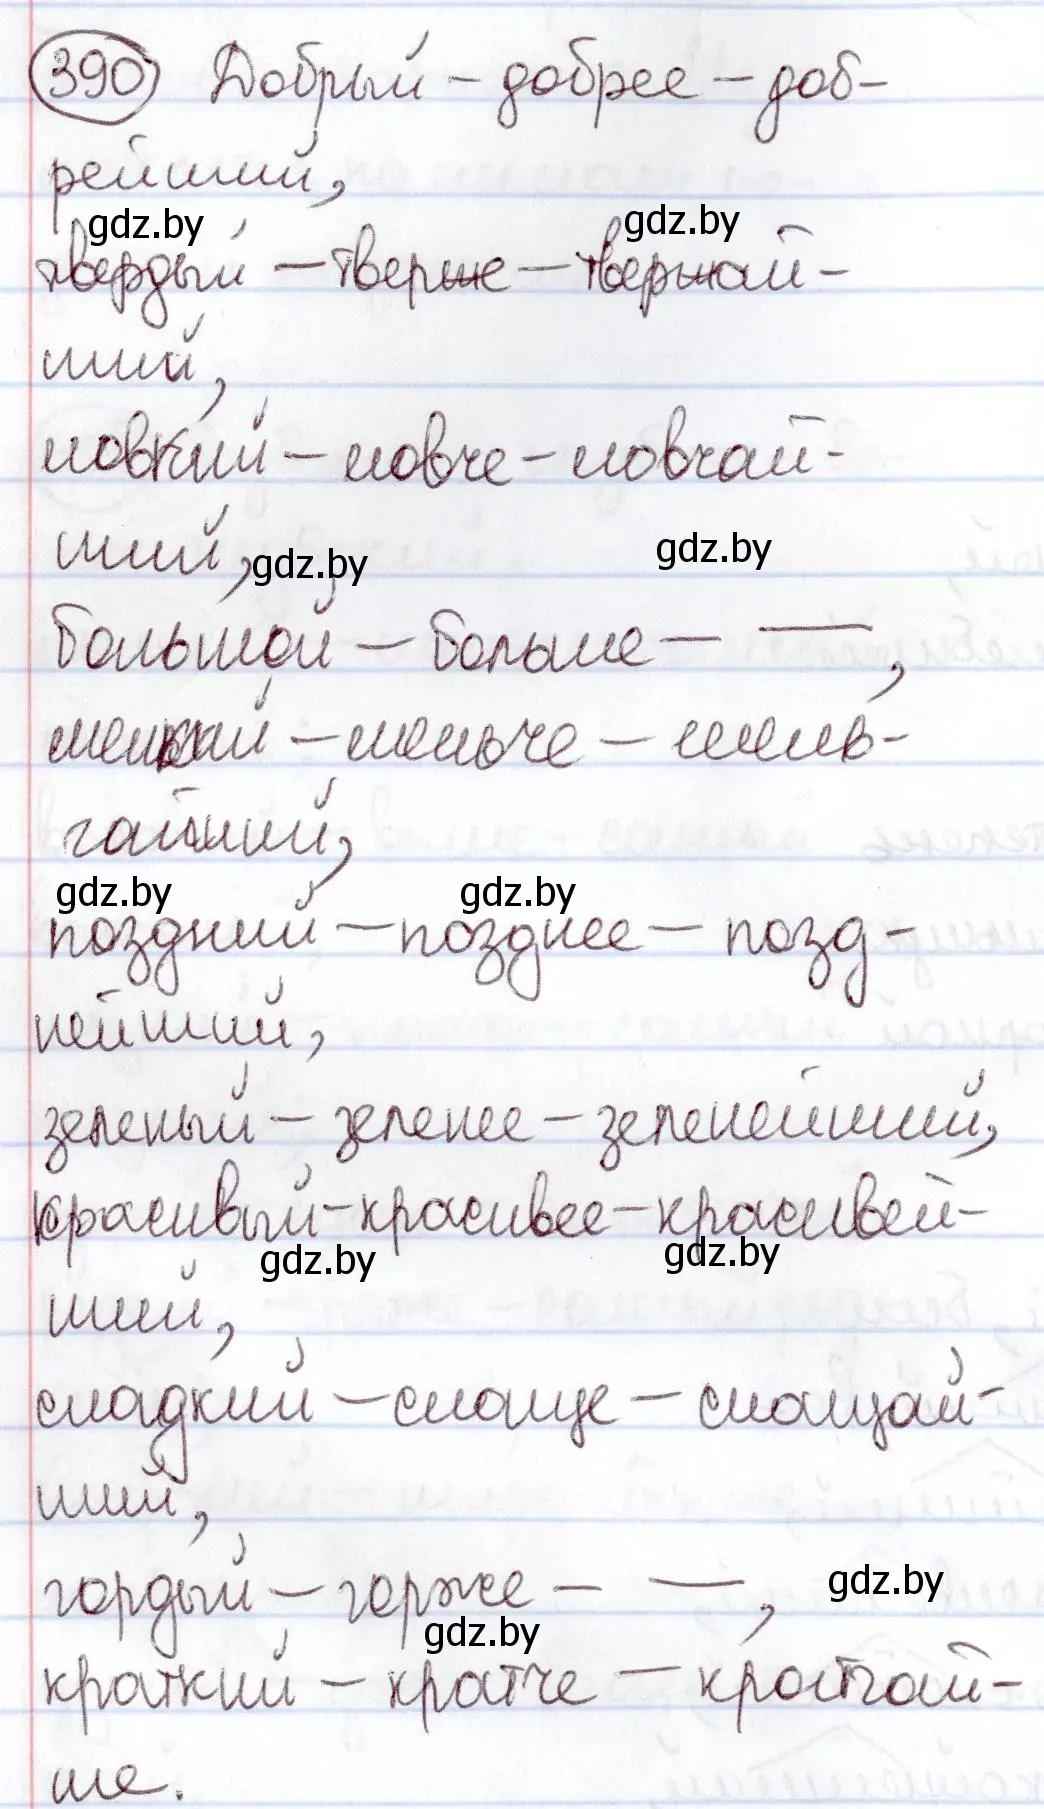 390 Добрый – добрее – доб-
рейший,
gdz.by gdz.by
твердый – тверже – твержай-
ший,
ловкий – ловче – ловчай-
ший,
gdz.by gdz.by
большой – больше – —,
мелкий – мельче – мель-
чайший,
gdz.by gdz.by
поздний – позднее – позд-
нейший,
зеленый – зеленее – зеленейший,
красивый – красивее – красивей-
gdz.by gdz.by
ший,
сладкий – слаще – слащай-
ший,
гордый – горже – —,
gdz.by
gdz.by
краткий – кратче – кратчай-
ше.